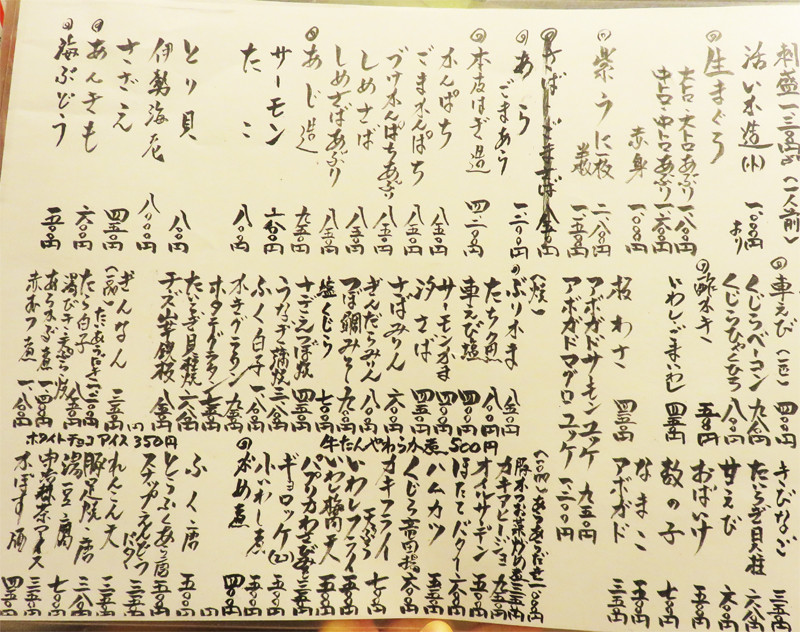 刺盛一三〇〇円(一人前)
活い水造(小)一、〇〇〇円より
生まぐろ
大トロ・大トロあぶり 一、八〇〇円
中トロ・中トロあぶり 一、六〇〇円
赤身 一、〇〇〇円
紫うに一枚 二、八〇〇円
半枚 一、五〇〇円
あら 一、二〇〇円
ごまあら
本皮はぎ造
かんぱち 八五〇円
ごまかんぱち 八五〇円
づけかんぱちあぶり 八五〇円
しめさば 八五〇円
しめさばあぶり 八五〇円
あじ造 九五〇円
サーモン
たこ 八〇〇円
とり貝 八〇〇円
伊勢海老 八、〇〇〇円
さざえ 四五〇円
あんきも 六〇〇円
海ぶどう 五〇〇円
車えび(一匹) 四〇〇円
くじらベーコン 九五〇円
くじらひゃくひろ 八〇〇円
酢がき 五〇〇円
いわしごまいわし 四五〇円
板わさ 四五〇円
アボガドサーモンユッケ 九五〇円
アボガドマグロユッケ 一、二〇〇円
(焼)
ぶりかま 八五〇円
たち魚 八〇〇円
車えび塩 四〇〇円
サーモンかま 四〇〇円
汐さば 四五〇円
さばみりん 六〇〇円
ぎんだらみりん 八〇〇円
つぼ鯛みそ 八五〇円
塩くじら 七〇〇円
さざえつぼ焼 四五〇円
うなぎ蒲焼
ふく白子 一、八〇〇円
かきグラタン 九五〇円
ホタテグラタン 七五〇円
たいらぎ貝柱焼 六八〇円
チーズ山芋鉄板 八五〇円
ぎんなん 三五〇円
たら白子 八五〇円
あらかぶ煮 一、四〇〇円
赤むつ煮 一、八〇〇円
牛たんやわらか煮 500円
ホワイトチョコアイス 350円
きびなご 三五〇円
たいらぎ貝柱 六八〇円
甘えび 六〇〇円
おばいけ 五〇〇円
数の子 七〇〇円
なまこ 三五〇円
アボガド 三五〇円
カキアヒージョ 九五〇円
オイルサーディン 五〇〇円
ほたてバター 六〇〇円
ハムカツ 五五〇円
くじら竜田揚 六〇〇円
カキフライ天ぷら 七〇〇円
いわしフライ 五五〇円
いわし梅肉天 五五〇円
ギョロッケ(2) 五〇〇円
小いわし煮 五〇〇円
がめ煮 四〇〇円
ふく唐 五〇〇円
とうふくあら唐 五五〇円
スナップえんどうバター 三五〇円
れんこん天 三五〇円
豚足焼 唐 三八〇円
湯豆腐 七〇〇円
宇治抹茶アイス 三五〇円
かぼす酒 四五〇円